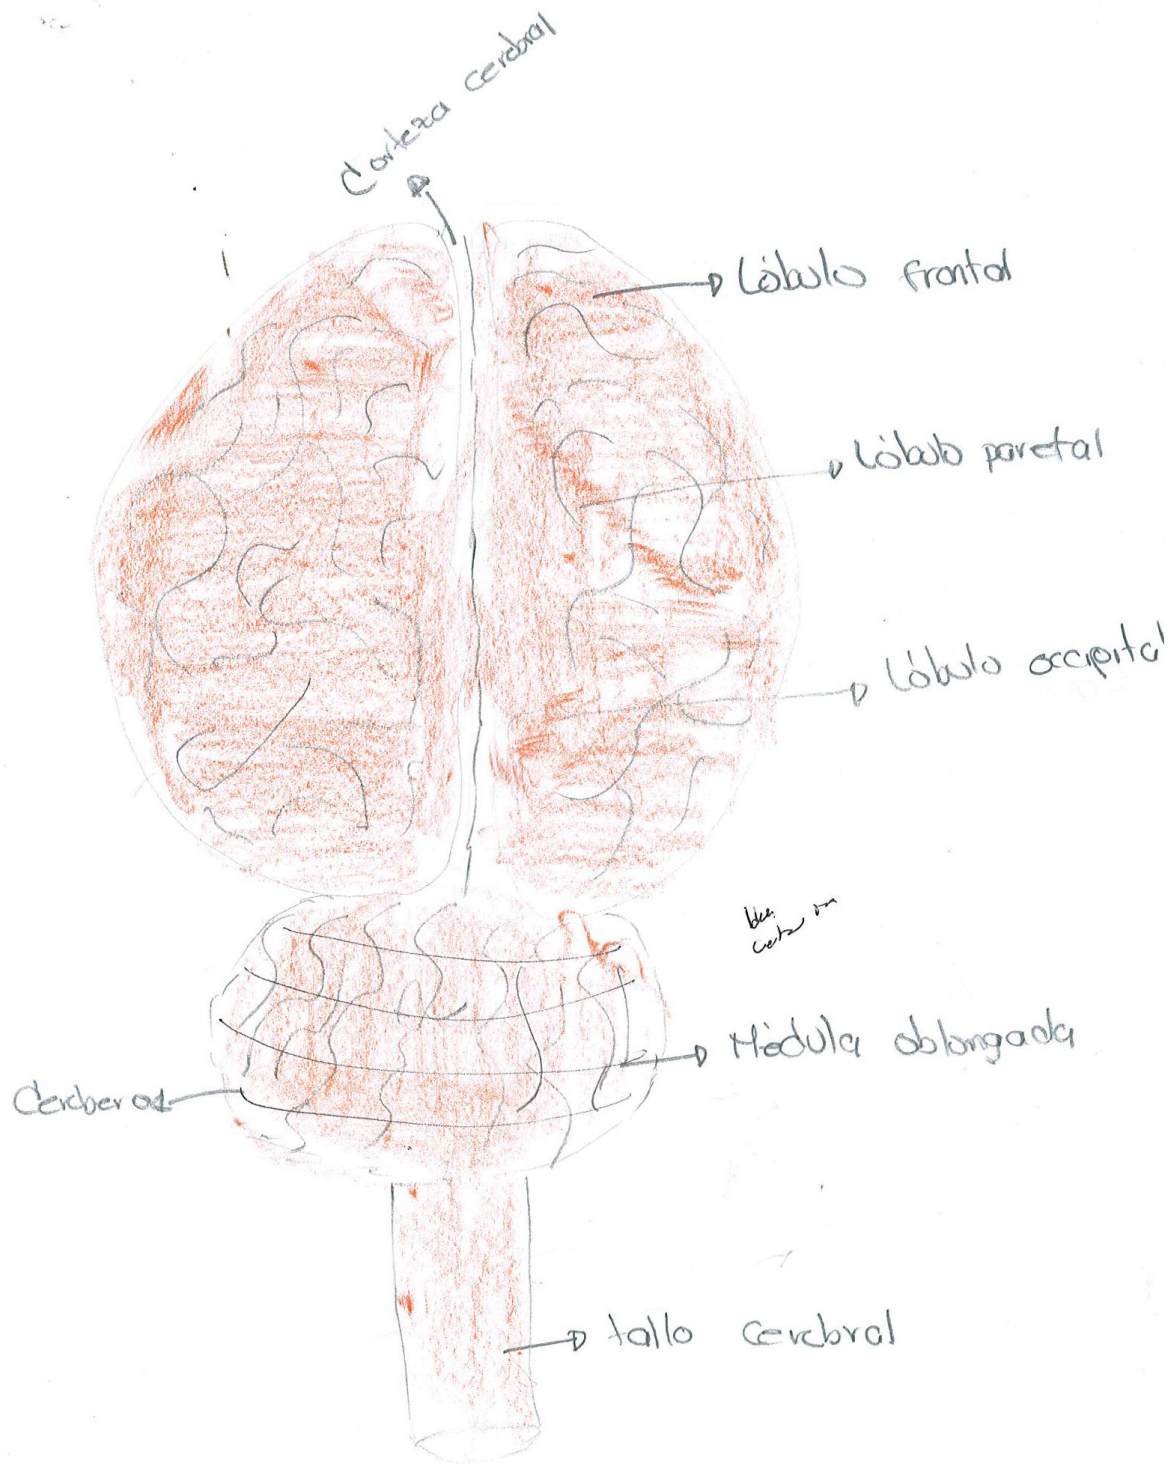 Corteza cerebral
Lóbulo frontal
Lóbulo paretal
Lóbulo occipital
Médula oblongada
Cerebero
tallo cerebral